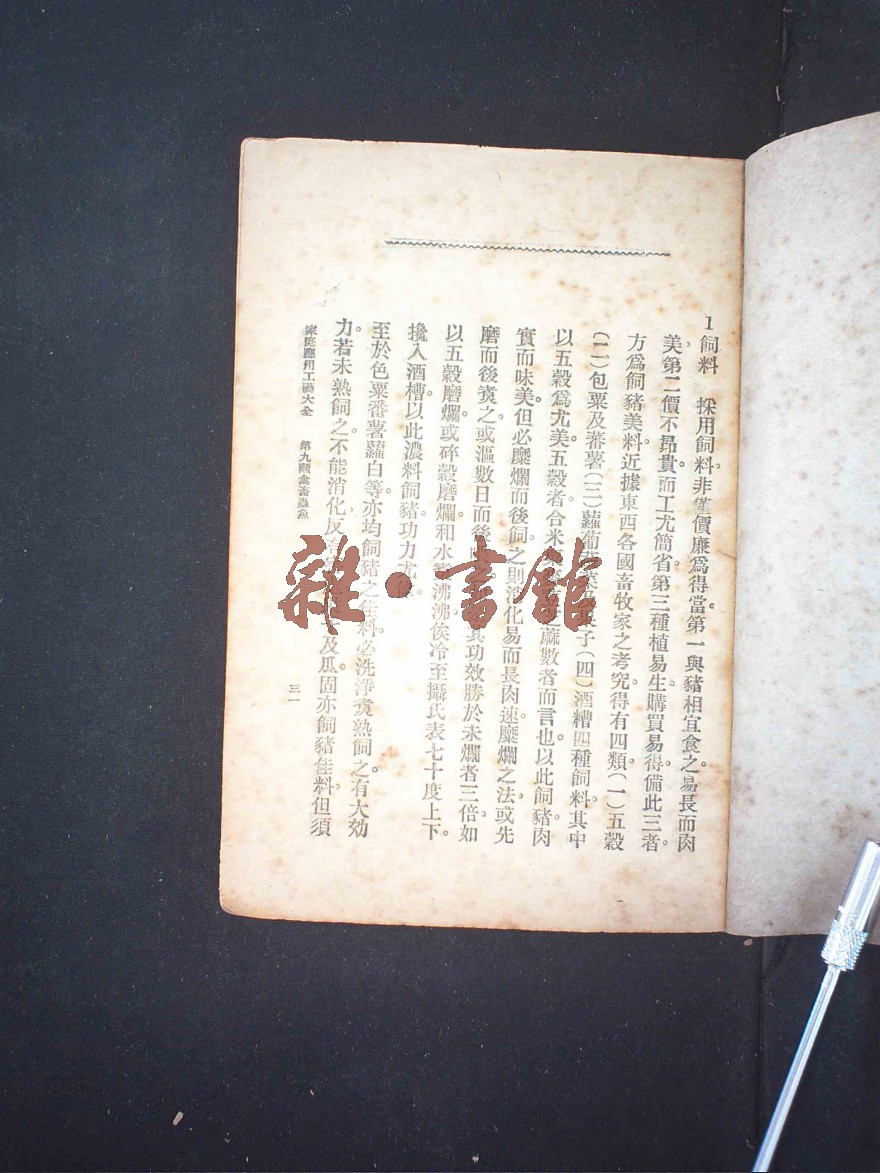 1飼料　採用飼料。非僅價廉爲得當。第一與豬相宜。食之易長而肉
美。第二價不昂貴。而工尤簡省。第三種植易生。購買易得。備此三者。
方爲飼豬美料。近據東西各國畜牧家之考究。得有四類。(一)五穀
(二)包粟及蕃薯(三)蘿葡　菜　子(四)酒糟。四種飼料。其中
以五穀爲尤美。五穀者合米　蔴數者而言也。以此飼豬。肉
實而味美。但必糜爛而後飼之。則消化易而長肉速。糜爛之法。或先
磨而後煑之。或漚數日而後　其功效勝於未爛者三倍。如
以五穀磨爛。或碎穀磨爛。和水　沸。沸俟冷至攝氏表七十度上下。
攙入酒槽。以此濃料飼豬。功力尤
至於色粟番薯蘿白等。亦均飼豬之佳料。必洗淨煑熟飼之。有大効
力。若未熟飼之。不能消化。反　及瓜。固亦飼豬佳料。但須
家庭應用工藝大全　第九類禽畜蟲魚　三一
雜·書館